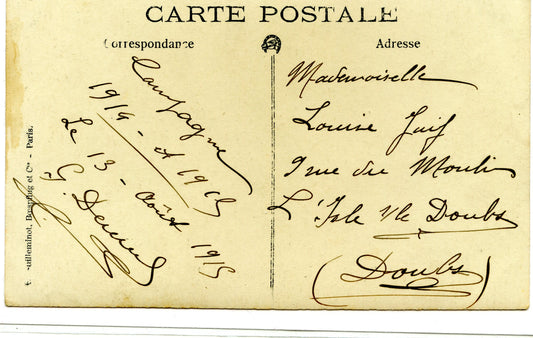 CARTE POSTALE
Correspondance
Campagne
1914 - et 1915
Le 13 - Août 1915
G.
Adresse
Mademoiselle
Louise
9 rue du Moulin
L'Isle s/le Doubs
(Doubs)
Guilleminot, et Cie - Paris.